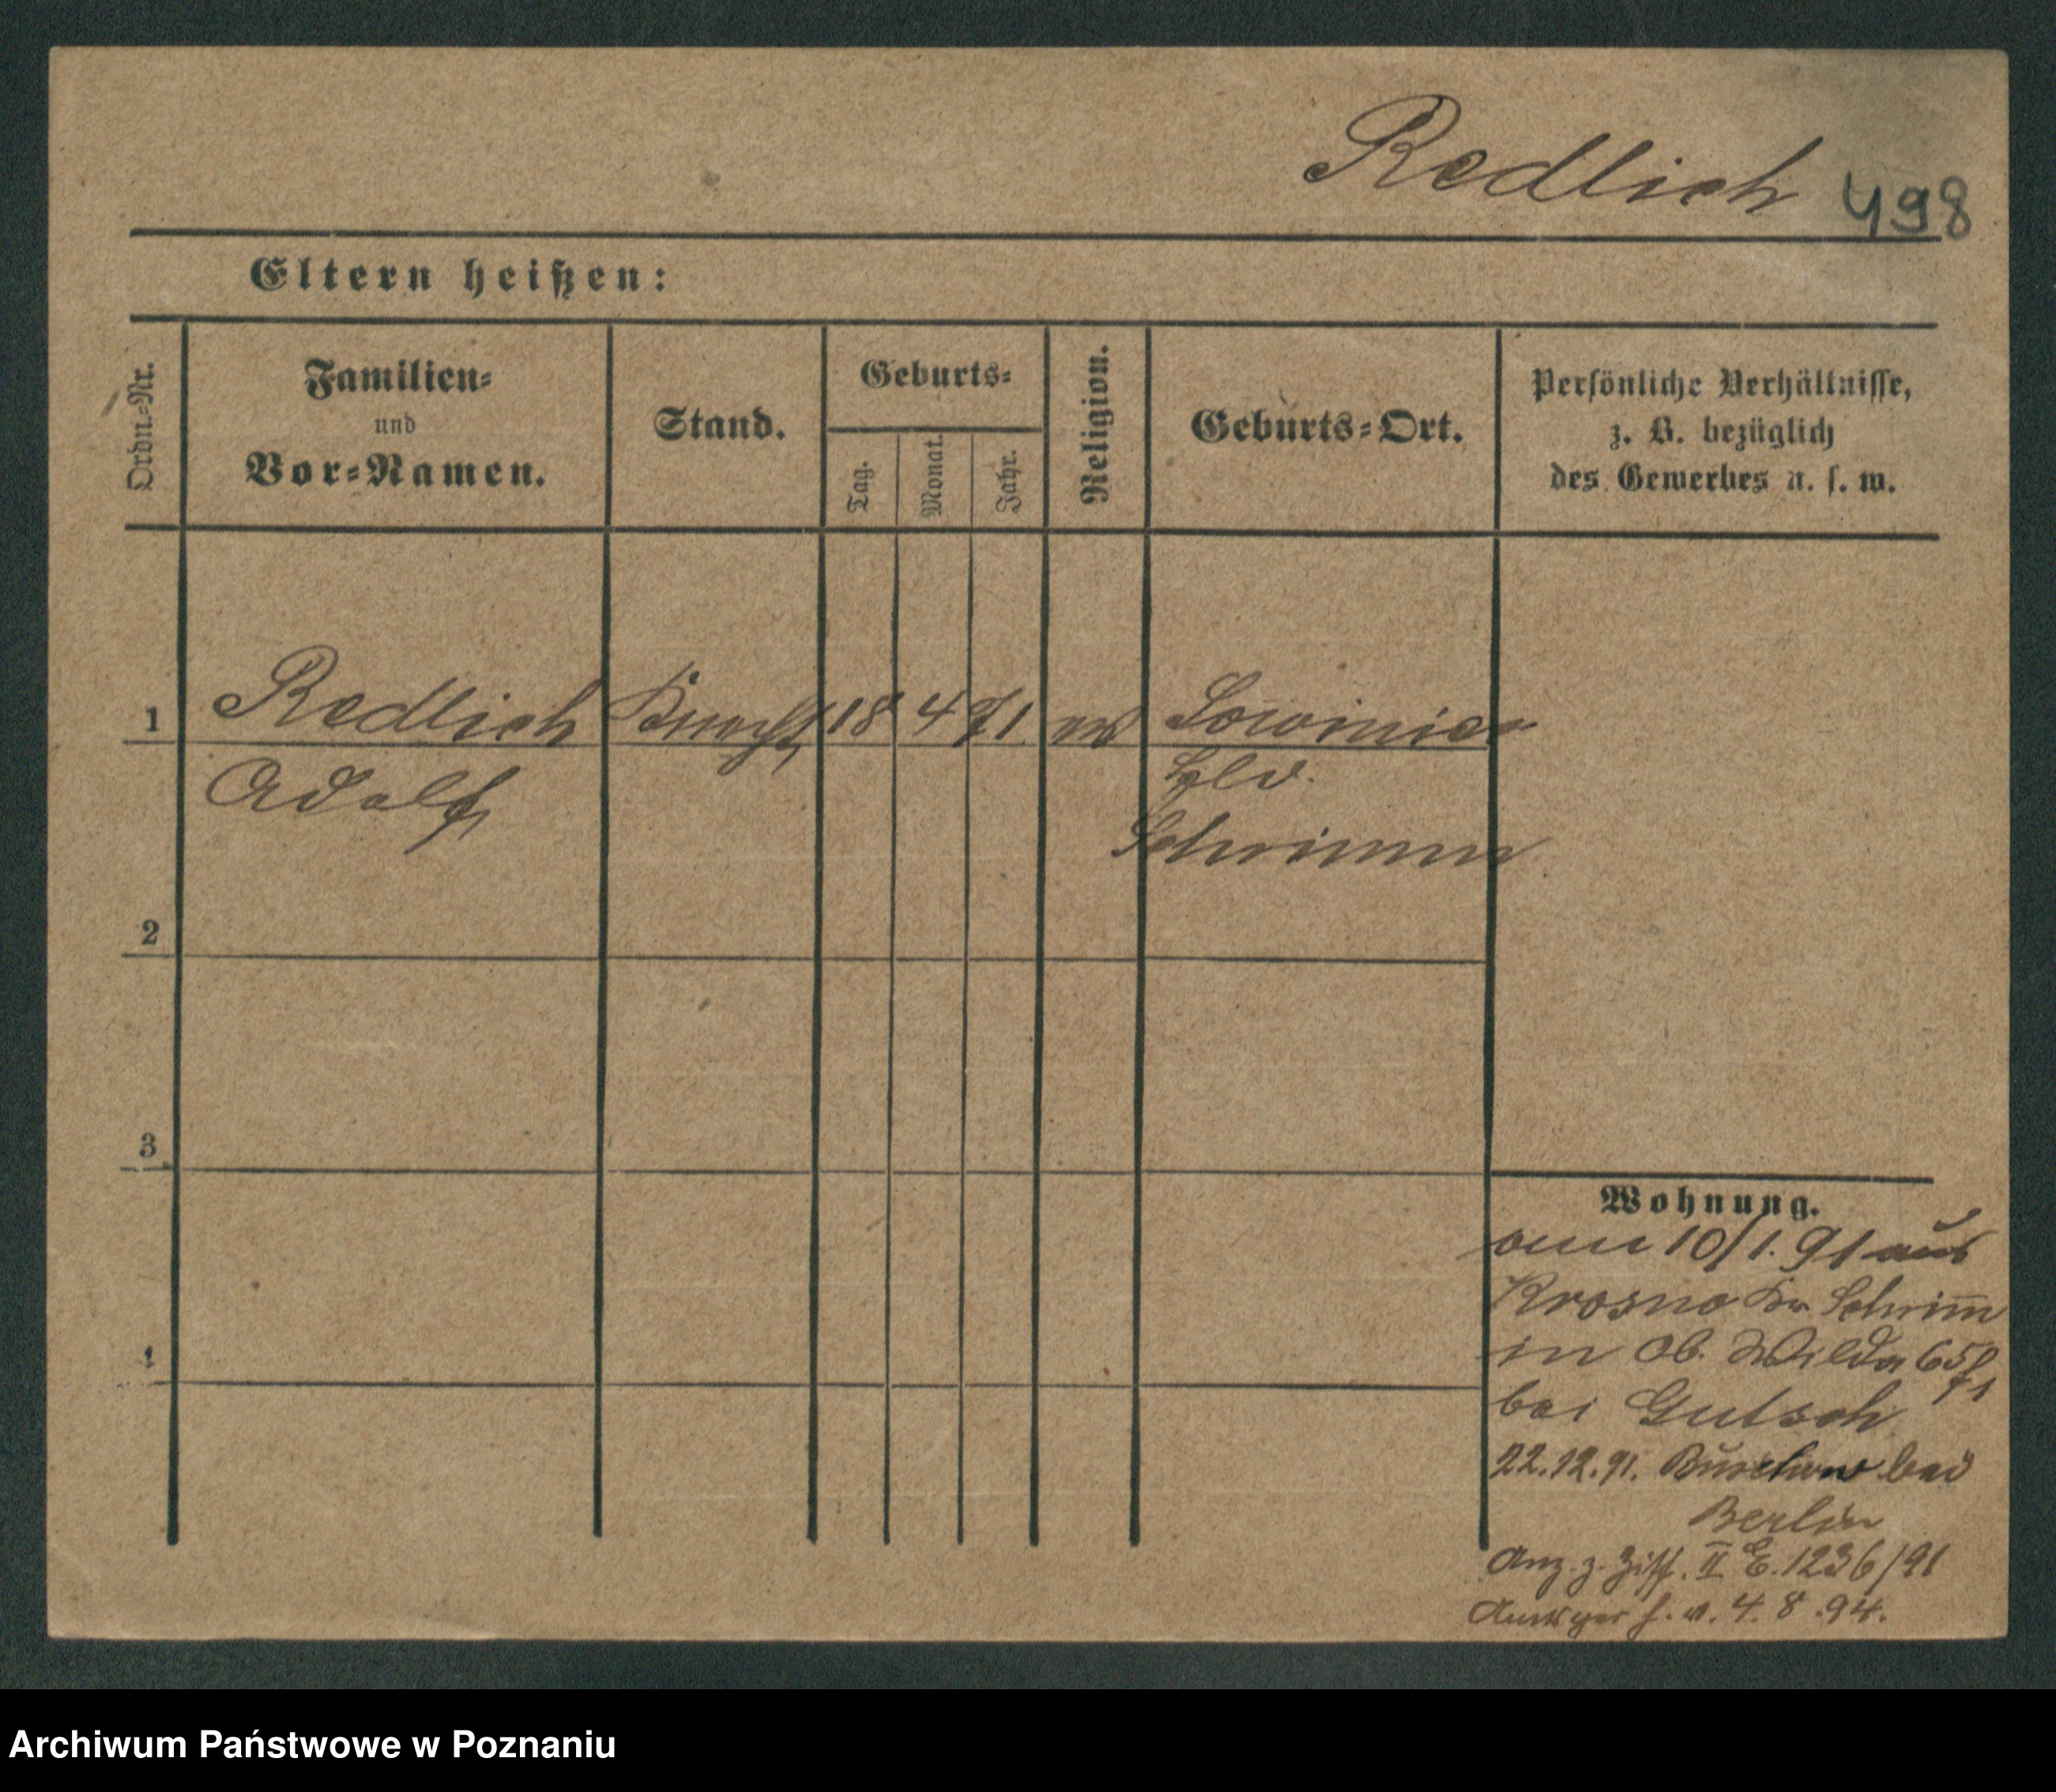 Redlich 498
Eltern heißen:
Ordn.=Nr.
Familien=
und
Vor=Namen.
Stand.
Geburts=
Tag.
Monat.
Jahr.
Religion.
Geburts=Ort.
Persönliche Verhältnisse,
z. B. bezüglich
des Gewerbes u. s. w.
1 Redlich Knecht 18 4 71 ev
Adolf
Schrimm
2
3
4
Wohnung.
10/1. 91 aus
Krosno Kr Schrim̅
in Ob. Wilda 65
bei Gutsch
22.12.91. bei
Berlin
Anz. z. Ziff. II E. 1236/91
4. 8. 94.
Archiwum Państwowe w Poznaniu